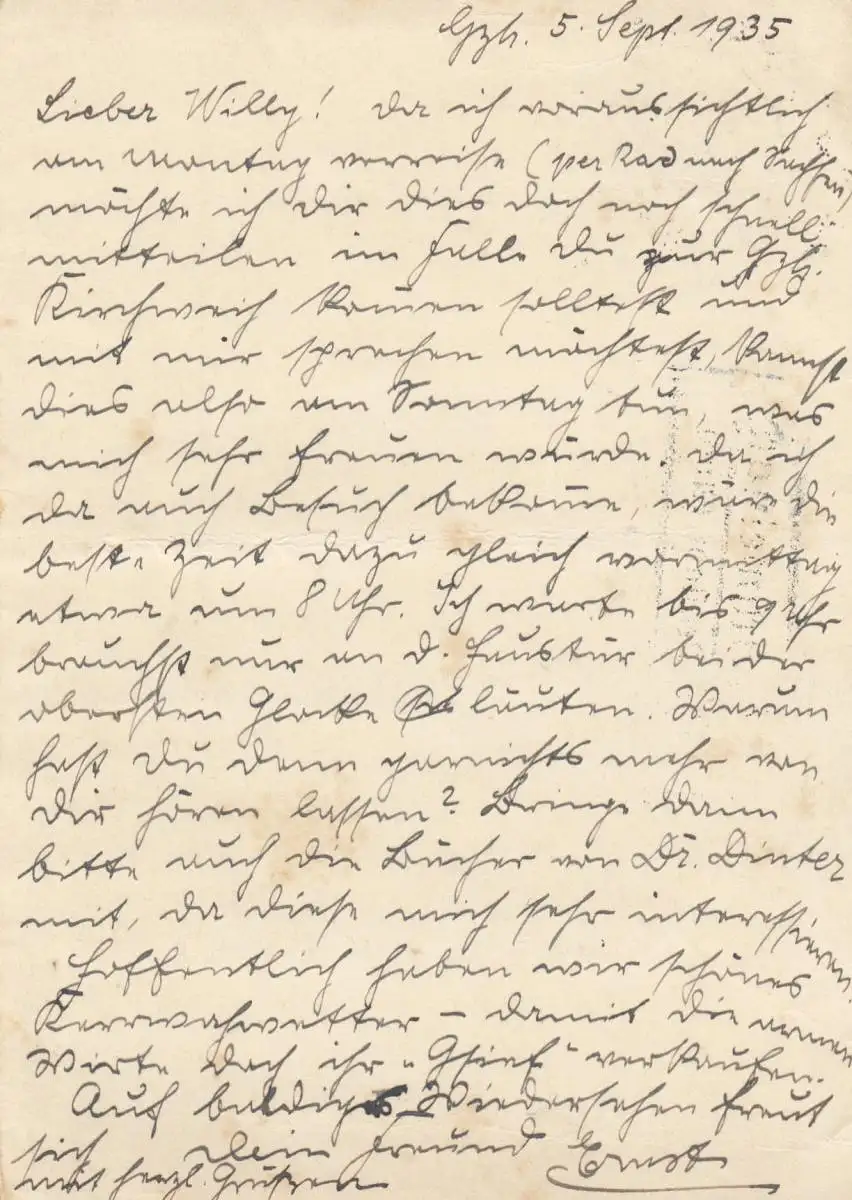 Gzh. 5. Sept. 1935
Lieber Willy! Da ich voraussichtlich
am Montag verreise (per Rad nach Sachsen)
möchte ich Dir dies doch noch schnell
mitteilen im Falle Du zur Gzh.
Kirchweih kom̄en solltest und
mit mir sprechen möchtest, kannst
dies also am Sonntag tun, was
mich sehr freuen würde. Da ich
da auch Besuch bekom̄e, wäre die
beste Zeit dazu gleich vormittag
etwa um 8 Uhr. Ich warte bis 9 Uhr
brauchst nur an d. Haustür bei der
obersten Glocke läuten. Warum
hast Du denn garnichts mehr von
Dir hören lassen? Bringe dann
bitte auch die Bücher von Dr. Dinter
mit, da diese mich sehr interessieren.
Hoffentlich haben wir schönes
Kerrwahwetter – damit die armen
Wirte doch ihr „Gsief“ verkaufen.
Auf baldiges Wiedersehen freut
sich Dein Freund Ernst
mit herzl. Grüßen